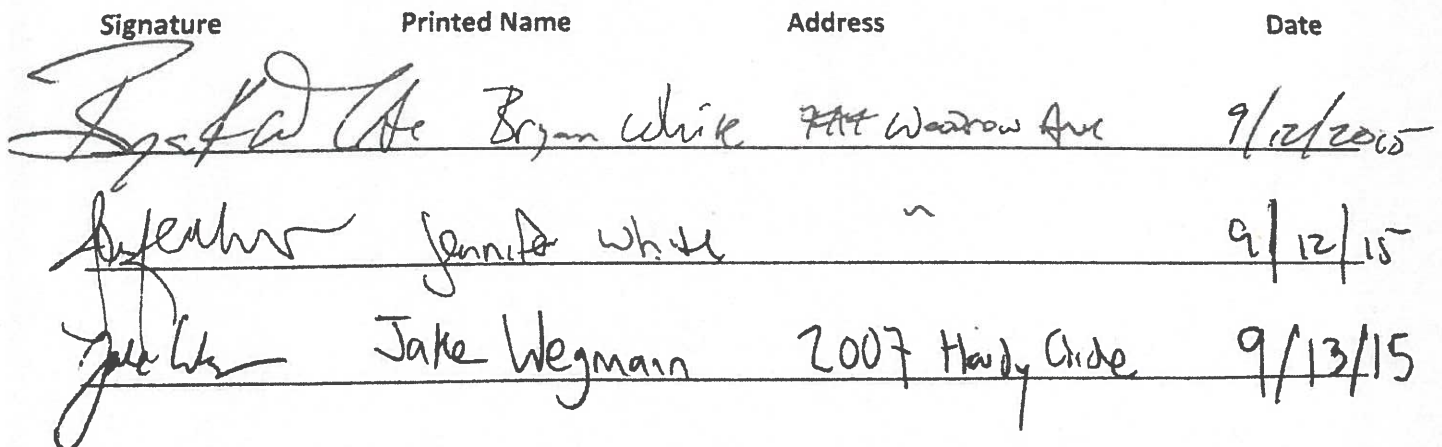 Signature Printed Name Address Date
Bryan White Woodrow Ave 9/12/2015
Jennifer White 〃 9/12/15
Jake Wegmann 2007 Hardy Circle 9/13/15